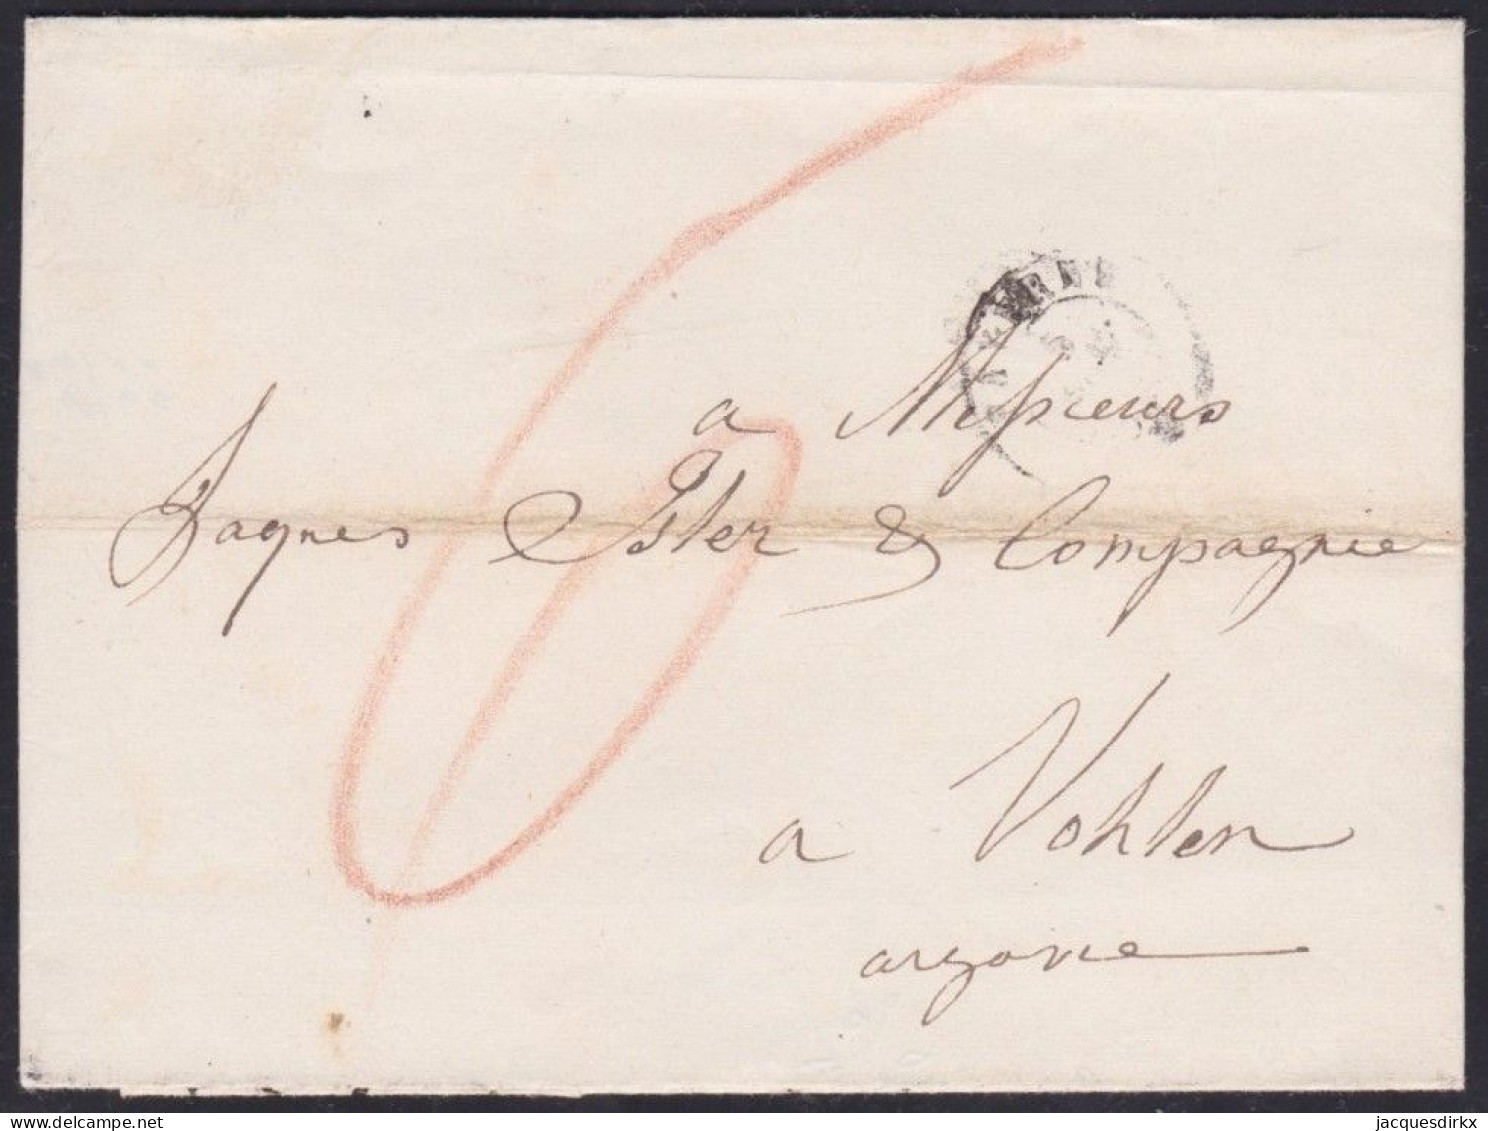 6
a Messieurs
Jaques Isler & Compagnie
a Vohlen
argovie
jacquesdirkx